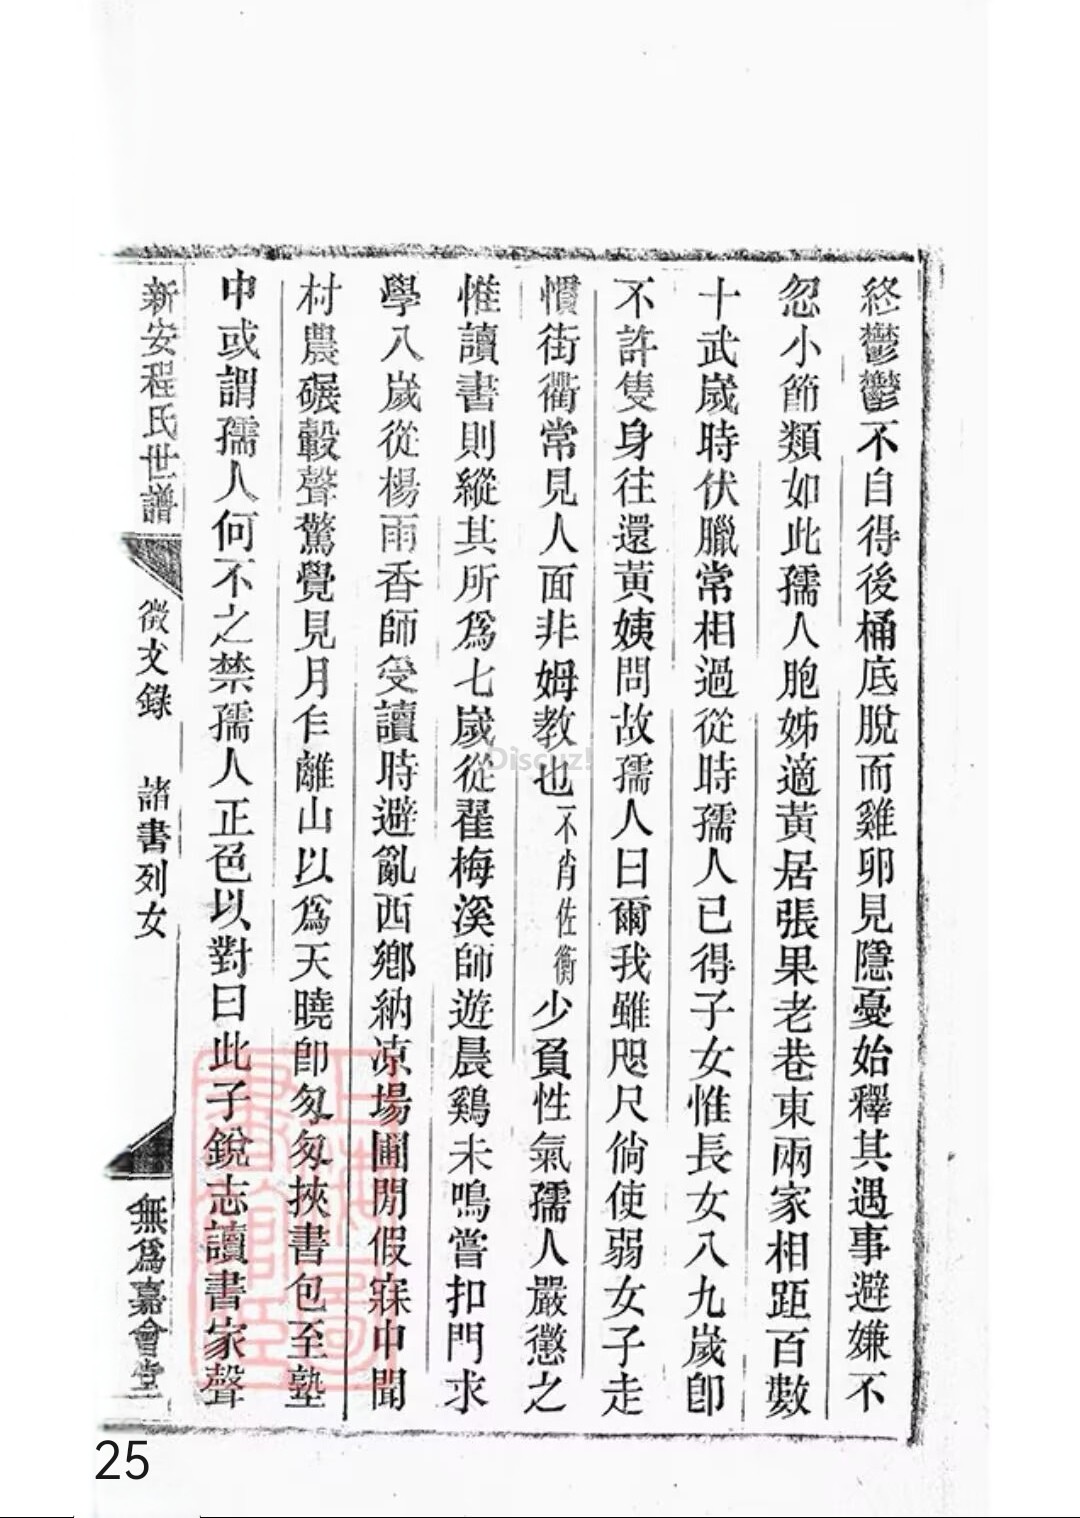 終鬱鬱不自得後桶底脫而雞卵見隱憂始釋其遇事避嫌不
忽小節類如此孺人胞姊適黃居張果老巷東兩家相距百數
十武歲時伏臘常相過從時孺人已得子女惟長女八九歲即
不許隻身往還黃姨問故孺人曰爾我雖咫尺倘使弱女子走
慣街衢常見人面非姆教也不肖佐衡少負性氣孺人嚴懲之
惟讀書則縱其所為七歲從翟梅溪師遊晨鷄未鳴嘗扣門求
學八歲從楊雨香師受讀時避亂西鄉納凉場圃閒假寐中聞
村農碾轂聲驚覺見月乍離山以為天曉即匆匆挾書包至塾
中或謂孺人何不之禁孺人正色以對曰此子銳志讀書家聲
新安程氏世譜
徵文錄
諸書列女
無為嘉會堂
Discuz!
25